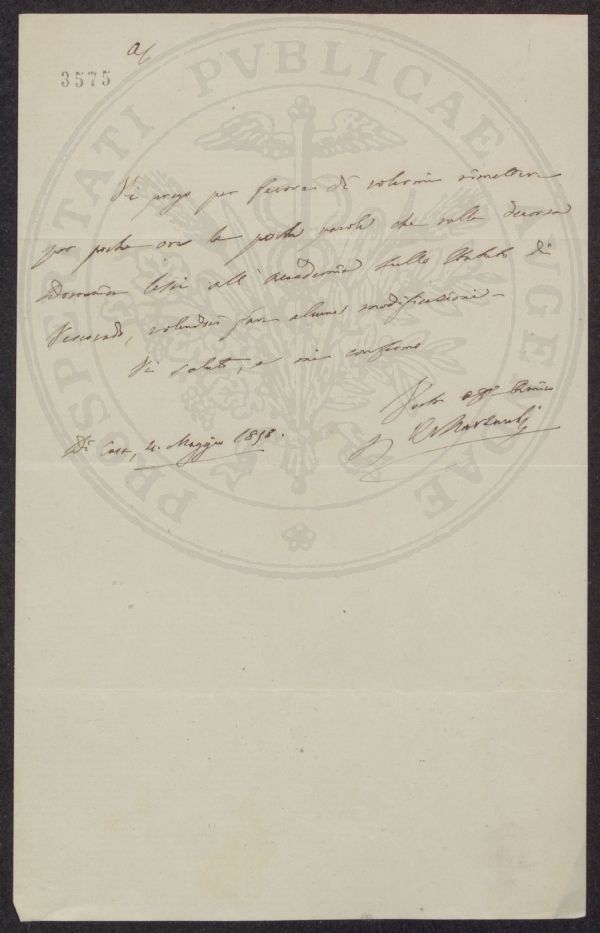 3575
PROSPERITATI PVBLICAE AVGENDAE
Vi prego per favore di volermi rimettere
per poche ore le poche parole che nella decorsa
Domenica lessi all' Accademia sullo Statuto di
Vescovado, volendoci fare alcune modificazioni.
Vi saluto, e mi confermo
Vostro aff. Amico
Di Casa, 4. Maggio 1858.